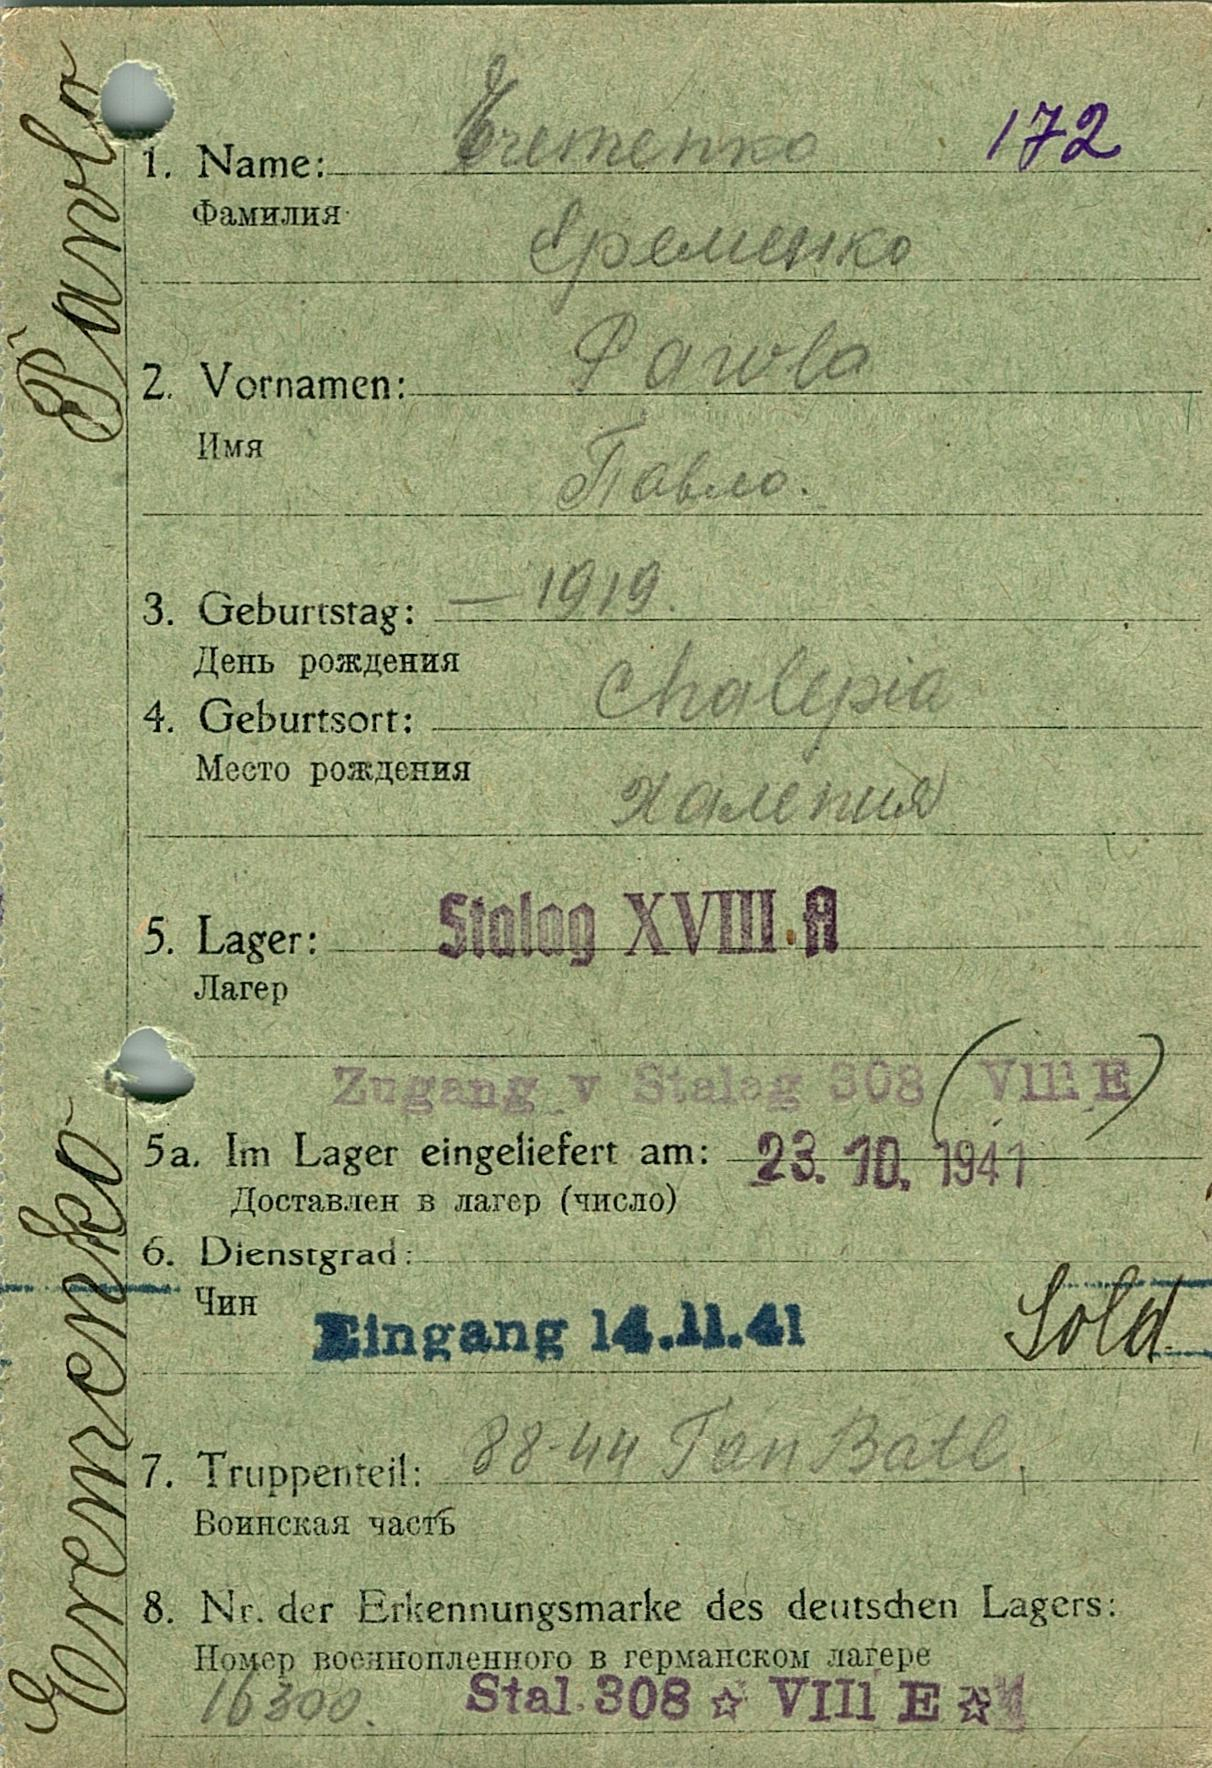 Eremenko Pavlo
172
1. Name: Eremenko
Фамилия
Еременко
2. Vornamen: Pawlo
Имя
Павло.
3. Geburtstag: — 1919.
День рождения
4. Geburtsort: Chalepia
Место рождения
Халепия
5. Lager: Stalag XVIII.A
Лагер
Zugang v Stalag 308 (VIII E)
5a. Im Lager eingeliefert am: 23. 10. 1941
Доставлен в лагер (число)
6. Dienstgrad:
Чин
Eingang 14.11.41 Sold
7. Truppenteil: 88-44 Tan Batl.
Воинская часть
8. Nr. der Erkennungsmarke des deutschen Lagers:
Номер военнопленного в германском лагере
16300. Stal. 308 ☆ VIII E ☆